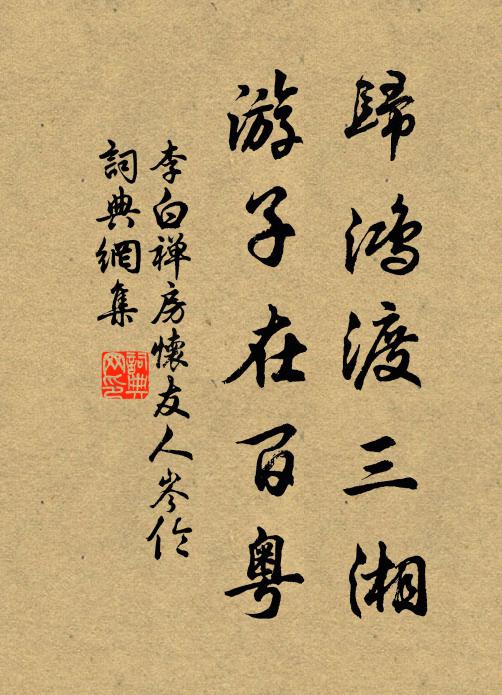 歸鴻渡三湘
游子在百粵
李白禅房懷友人岑倫
詞典網集
詞典网印